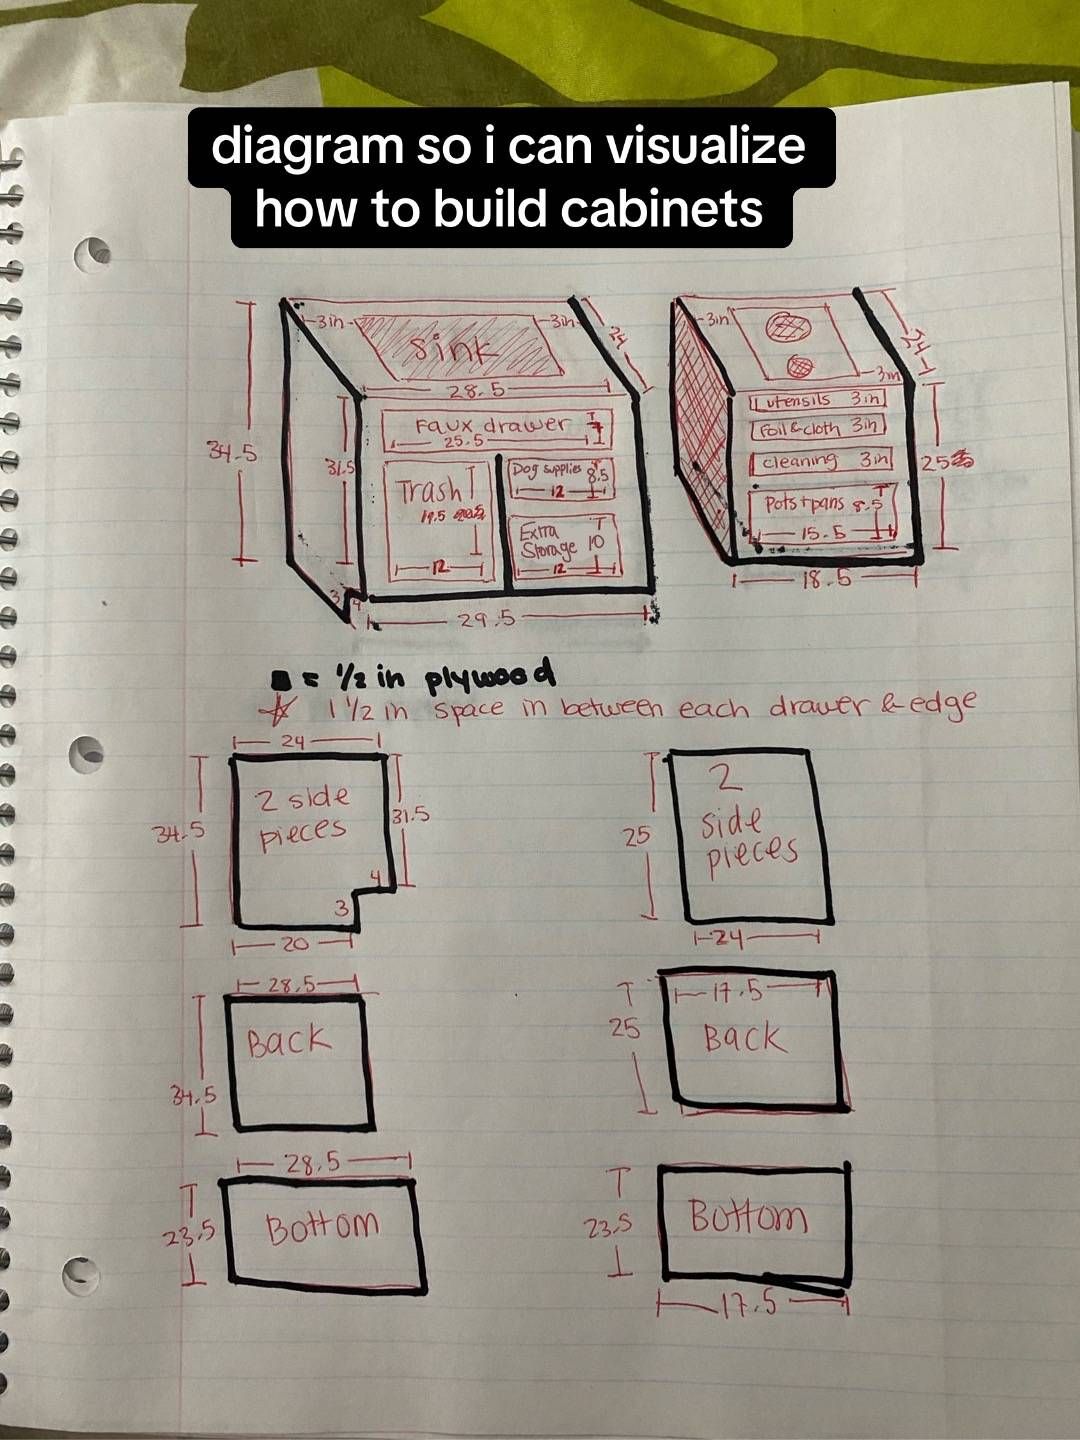 diagram so i can visualize
how to build cabinets
3in
3in
Sink
24
28.5
34.5
31.5
Faux drawer
25.5
Trash
19.5
12
Dog supplies
8.5
12
Extra
Storage
10
12
3
4
29.5
3in
24
3in
Utensils 3in
Foil & cloth 3in
cleaning 3in
Pots + pans 8.5
15.5
25
18.5
= 1/2 in plywood
1 1/2 in space in between each drawer & edge
24
34.5
2 side
pieces
31.5
4
3
20
25
2
side
pieces
24
28.5
Back
34.5
17.5
25
Back
28.5
23.5
Bottom
23.5
Bottom
17.5